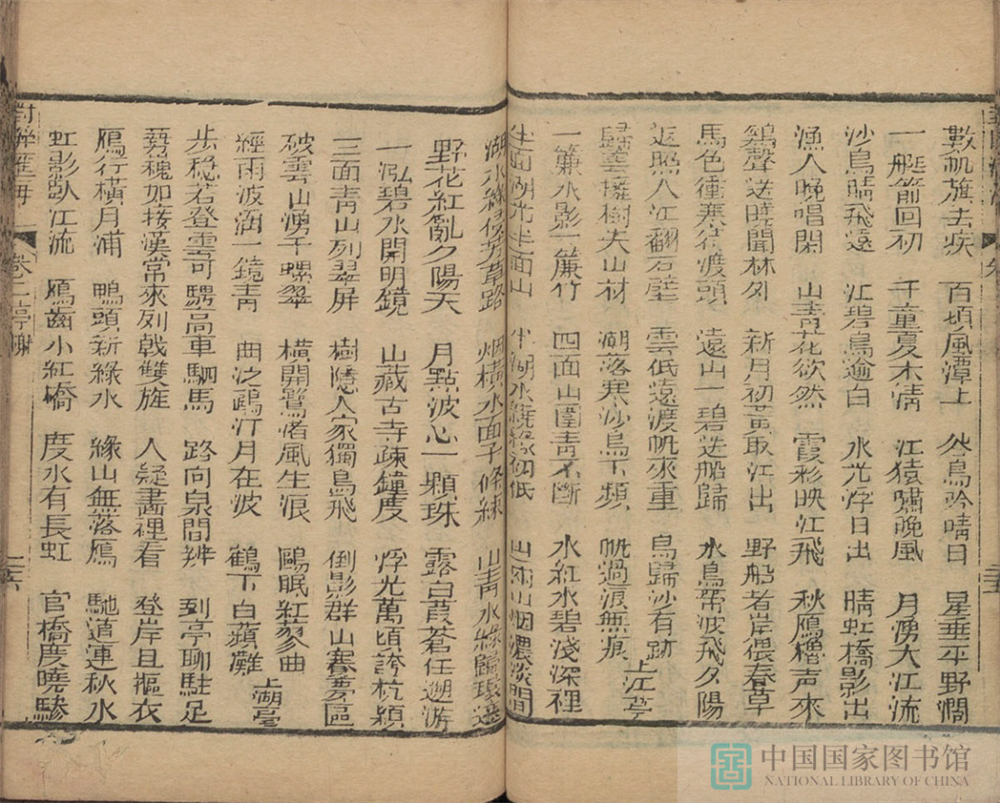 數帆旗去疾 百頃風潭上 岩鳥吟晴日 星垂平野闊
一艇箭回初 千重夏木清 江猿嘯晚風 月湧大江流
沙鳥晴飛遠 江碧鳥逾白 水光浮日出 晴虹橋影出
漁人晚唱閑 山青花欲然 霞彩映江飛 秋鴈櫓声來
鷄聲送曉聞林外 新月初黃取江出 野船著岸偎春草
馬色衝寒在渡頭 遠山一碧送船歸 水鳥帶波飛夕陽
返照入江翻石壁 雲低遠渡帆來重 鳥歸沙有跡
歸雲擁樹失山村 潮落寒沙鳥下頻 帆過浪無痕 上江亭
一簾水影一簾竹 四面山圍青不斷 水紅水碧淺深裡
半面湖光半面山 半湖水綠 初低 山 山烟濃淡間
湖水綠侵芳草路 烟橫水面千條練 山青水綠歸環遶
野花紅亂夕陽天 月點波心一顆珠 露白葭蒼任遡游
一泓碧水開明鏡 山藏古寺疎鐘度 浮光萬頃誇杭潁
三面青山列翠屏 樹隱人家獨鳥飛 倒影群山塞寰區
破雲山湧千螺翠 橫開鷺渚風生浪 鷗眠紅蓼曲
經雨波涵一鏡青 曲泛鷗汀月在波 鶴下白蘋灘 上湖亭
步稳若登雲可騁高車駟馬 路向泉間辨 到亭聊駐足
翥槐如接漢常來列戟雙旌 人疑畫裡看 登岸且摳衣
鴈行橫月浦 鴨頭新綠水 緣山無落鴈 馳道運秋水
虹影臥江流 鴈齒小紅橋 度水有長虹 官橋度曉驂
卷二亭榭
中国国家图书馆
NATIONAL LIBRARY OF CHINA